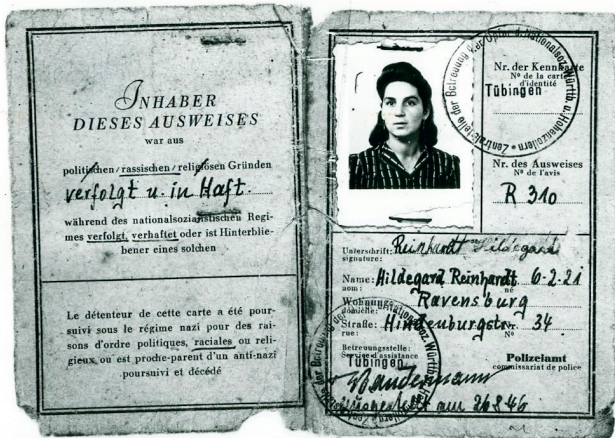 INHABER
DIESES AUSWEISES
war aus
politischen / rassischen / religiösen Gründen
verfolgt u. in Haft.
während des nationalsozialistischen Regi-
mes verfolgt, verhaftet oder ist Hinterblie-
bener eines solchen
Le détenteur de cette carte a été pour-
suivi sous le régime nazi pour des rai-
sons d'ordre politiques, raciales ou reli-
gieux, ou est proche-parent d'un anti-nazi
poursuivi et décédé
Zentralstelle der Betreuung der Opfer d. Nationalsoz. Württb. u. Hohenzollern
Nr. der Kennkarte
Nº de la carte
d'identité
Tübingen
Nr. des Ausweises
Nº de l'avis
R 310
Unterschrift: Reinhardt Hildegard
signature:
Name: Hildegard Reinhardt 6-2-21
nom: né
Wohnung: Ravensburg
domicile:
Straße: Hindenburgstr. Nr. 34
rue: Nº
Betreuungsstelle:
Service d'assistance
Tübingen
Polizeiamt
commissariat de police
ausgestellt am 26 8 46